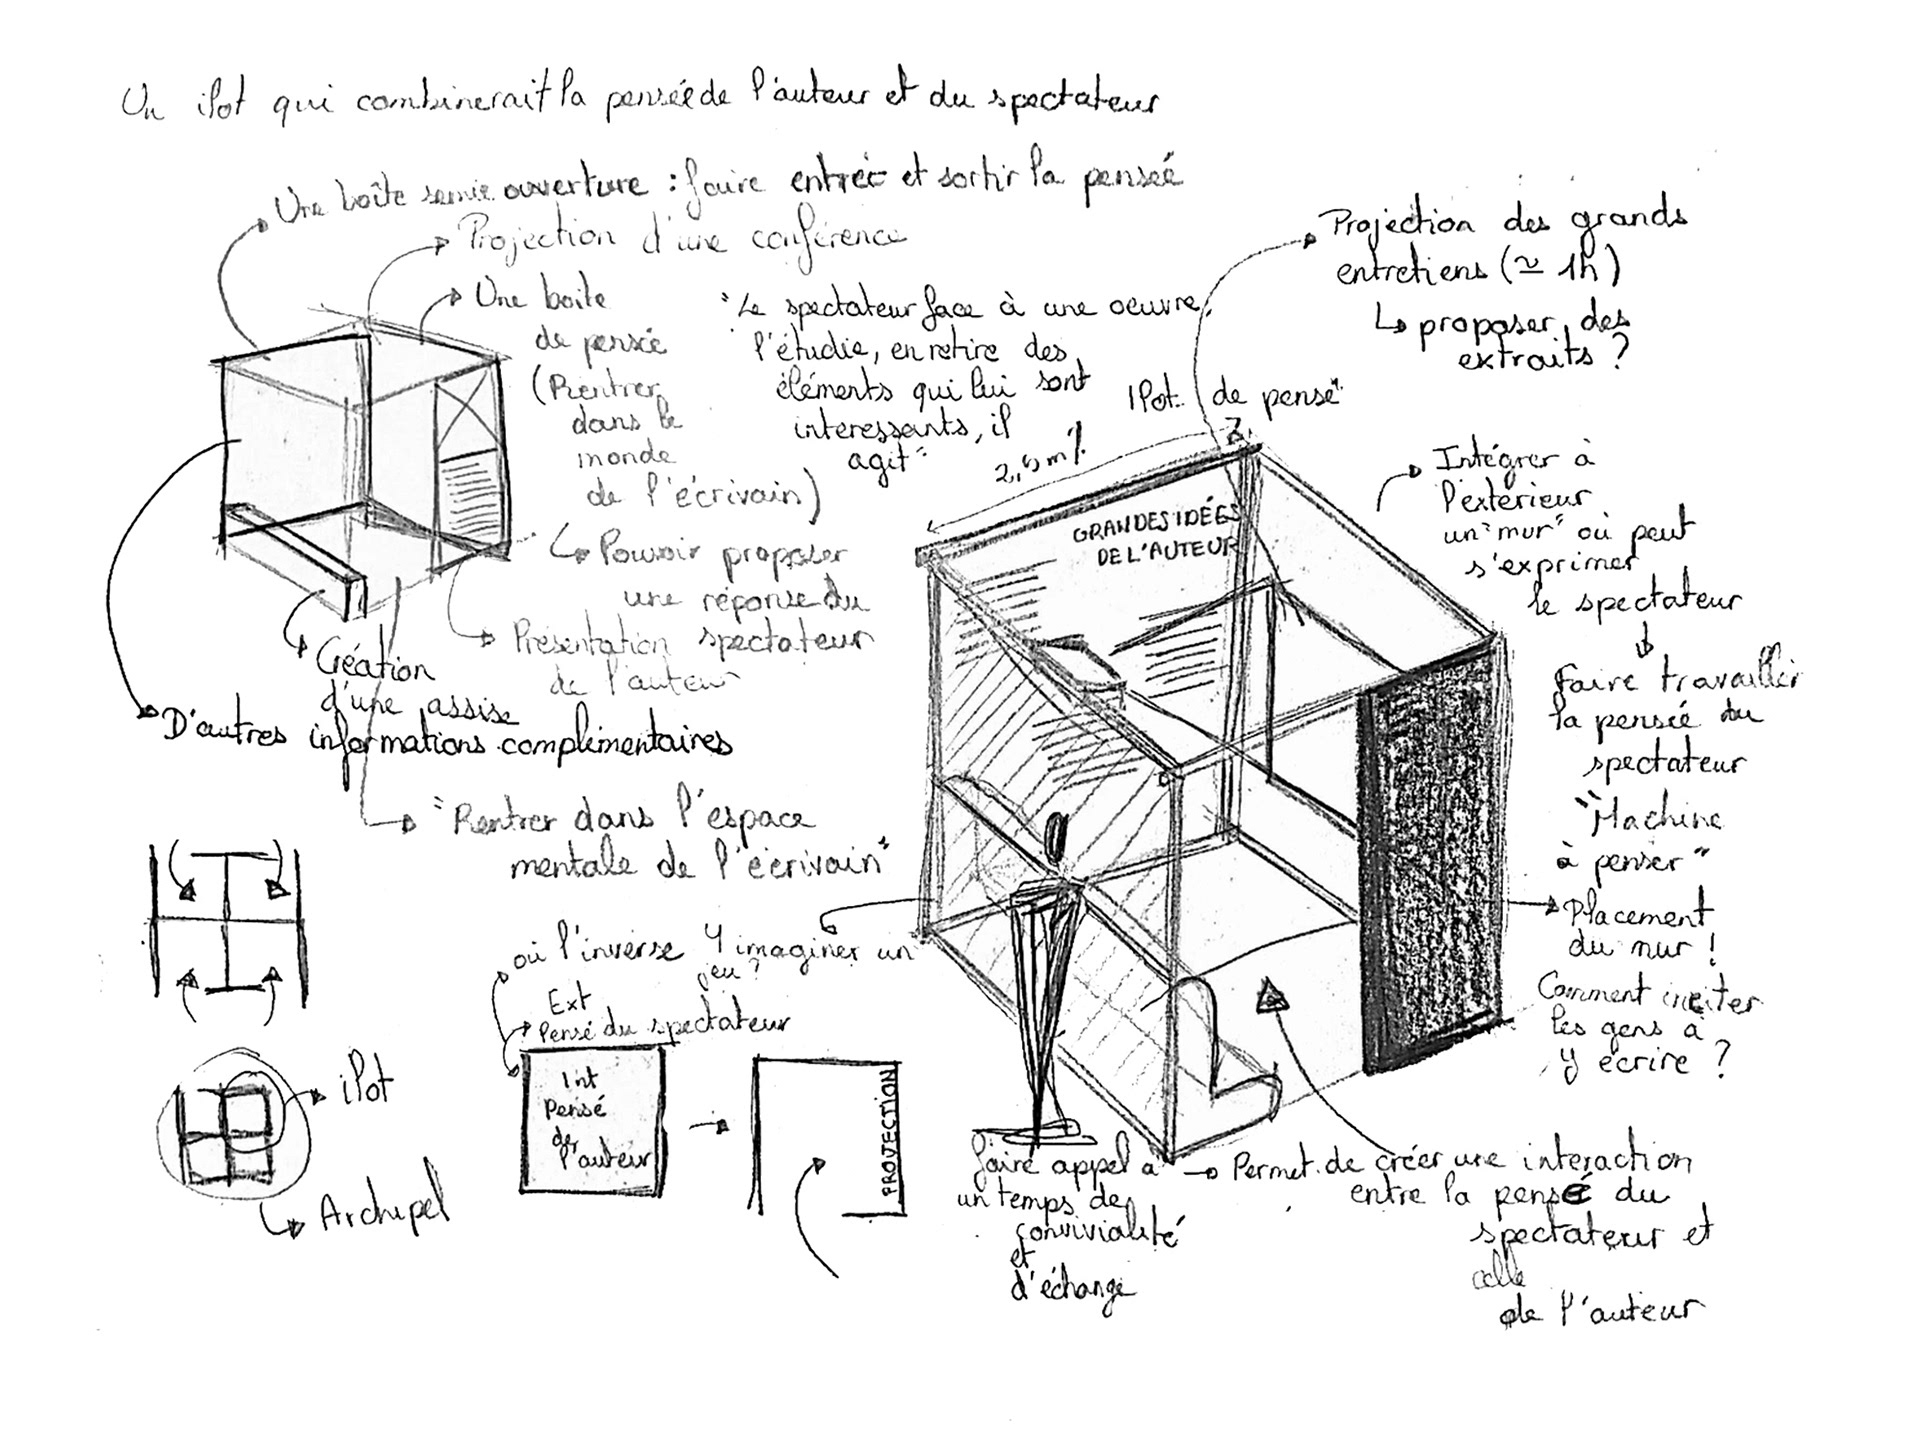 Un ilot qui combinerait la pensée de l'auteur et du spectateur
Une boîte semie ouverture : faire entrée et sortir la pensée
Projection d'une conférence
Une boite
de pensée
(Rentrer
dans le
monde
de l'écrivain)
Pouvoir proposer
une réponse du
spectateur
Présentation
de l'auteur
Création
d'une assise
D'autres informations complémentaires
"Rentrer dans l'espace
mentale de l'écrivain"
"Le spectateur face à une oeuvre,
l'étudie, en retire des
éléments qui lui sont
interessants, il
agit"
Projection des grands
entretiens (≃ 1h)
↳ proposer des
extraits ?
Ilot de pensé
GRANDES IDÉES
DE L'AUTEUR
Intégrer à
l'exterieur
un "mur" où peut
s'exprimer
le spectateur
faire travailler
la pensée du
spectateur
"Machine
à penser"
Placement
du mur !
Comment inciter
les gens à
y écrire ?
où l'inverse
Y imaginer un
jeu ?
Ext
Pensé du spectateur
Int
Pensé
de
l'auteur
PROJECTION
ilot
Archipel
faire appel à
un temps de
convivialité
et
d'échange
Permet de créer une interaction
entre la pensé du
spectateur et
celle
de l'auteur